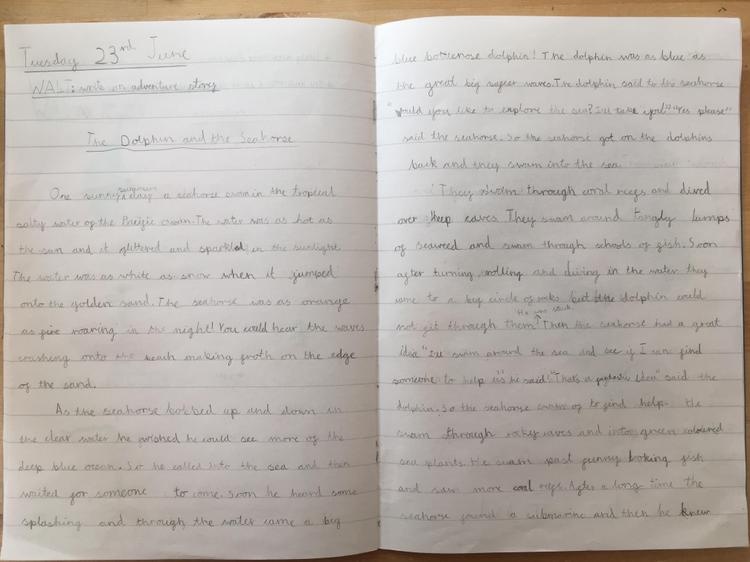 Tuesday 23rd June
WALT: write an adventure story
The Dolphin and the Seahorse
One sunny summers day a seahorse swam in the tropical
salty water of the Pacific ocean. The water was as hot as
the sun and it glittered and sparkled in the sunlight.
The water was as white as snow when it jumped
onto the golden sand. The seahorse was as orange
as fire roaring in the night! You could hear the waves
crashing onto the beach making froth on the edge
of the sand.
As the seahorse bobbed up and down in
the clear water he wished he could see more of the
deep blue ocean. So he called into the sea and then
waited for someone to come. Soon he heard some
splashing and through the water came a big
blue bottlenose dolphin! The dolphin was as blue as
the great big waves. The dolphin said to the seahorse
"would you like to explore the sea? I'll take you!" "Yes please"
said the seahorse. So the seahorse got on the dolphins
back and they swam into the sea
They swam through coral reefs and dived
over deep caves. They swam around tangly lumps
of seaweed and swam through schools of fish. Soon
after turning, rolling and diving in the water they
came to a big circle of rocks but the dolphin could
not fit through them! He was stuck. Then the seahorse had a great
idea "I'll swam around the sea and see if I can find
someone to help us" he said! "That's a fantastic idea" said the
dolphin. So the seahorse swam of to find help. He
swam through rocky caves and into green coloured
sea plants. He swam past funny looking fish
and saw more coral reefs. After a long time the
seahorse found a submarine and then he knew